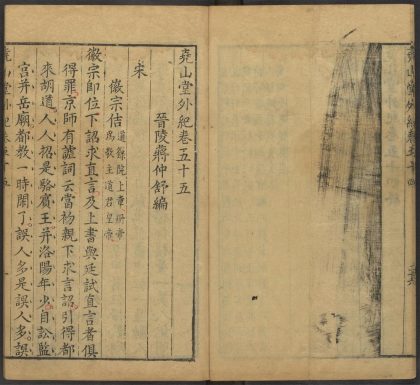 堯山堂外紀卷五十五
晉陵蔣仲舒編
宋
徽宗佶
道籙院上章冊帝
為教主道君皇帝
徽宗即位下詔求直言及上書與廷試直言者俱
得罪京師有謔詞云當初親下求言詔引得都
來胡道人人招是駱賓王并洛陽年少自訟監
宮并岳廟都教一時閙了誤人多是誤人多誤
堯山堂外紀卷五十五